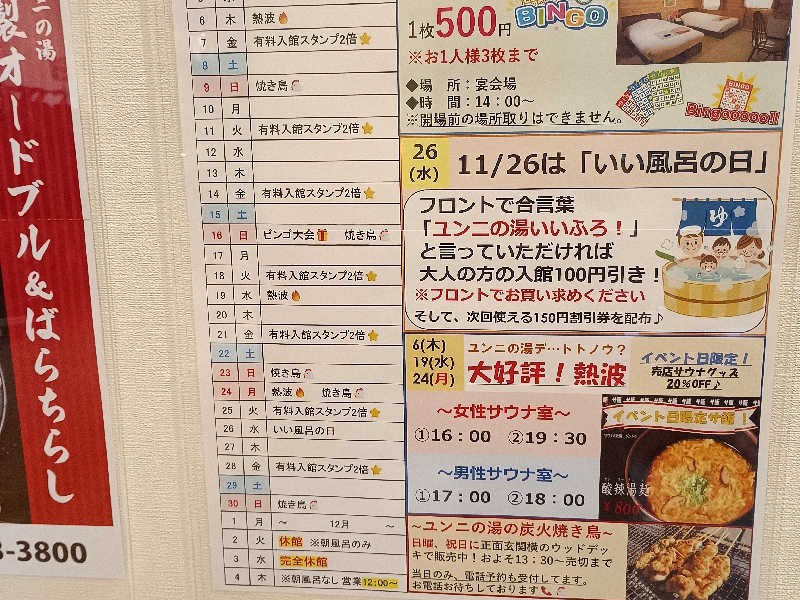 ニの湯
製オードブル&ばらちらし
-3800
6 木 熱波
7 金 有料入館スタンプ2倍
8 土
9 日 焼き鳥
10 月
11 火 有料入館スタンプ2倍
12 水
13 木
14 金 有料入館スタンプ2倍
15 土
16 日 ビンゴ大会 焼き鳥
17 月
18 火 有料入館スタンプ2倍
19 水 熱波
20 木
21 金 有料入館スタンプ2倍
22 土
23 日 焼き鳥
24 月 熱波 焼き鳥
25 火 有料入館スタンプ2倍
26 水 いい風呂の日
27 木
28 金 有料入館スタンプ2倍
29 土
30 日 焼き鳥
1 月 ～ 12月 ～
2 火 休館 ※朝風呂のみ
3 水 完全休館
4 木 ※朝風呂なし 営業12:00～
BINGO
1枚500円
※お1人様3枚まで
◆場 所：宴会場
◆時 間：14：00～
※開場前の場所取りはできません。
BINGO
Bingooooo!!
26
(水)
11/26は「いい風呂の日」
フロントで合言葉
「ユンニの湯いいふろ！」
と言っていただければ
大人の方の入館100円引き！
※フロントでお買い求めください
そして、次回使える150円割引券を配布♪
ゆ
6(木)
19(水)
24(月)
ユンニの湯デ…トトノウ？
大好評！熱波
イベント日限定！
売店サウナグッズ
20%OFF♪
～女性サウナ室～
①16：00 ②19：30
～男性サウナ室～
①17：00 ②18：00
イベント日限定サ飯！
酸辣湯麺
￥800
～ユンニの湯の炭火焼き鳥～
日曜、祝日に正面玄関横のウッドデッ
キで販売中！およそ13：30～売切まで
当日のみ、電話予約も受付してます。
お電話お待ちしております